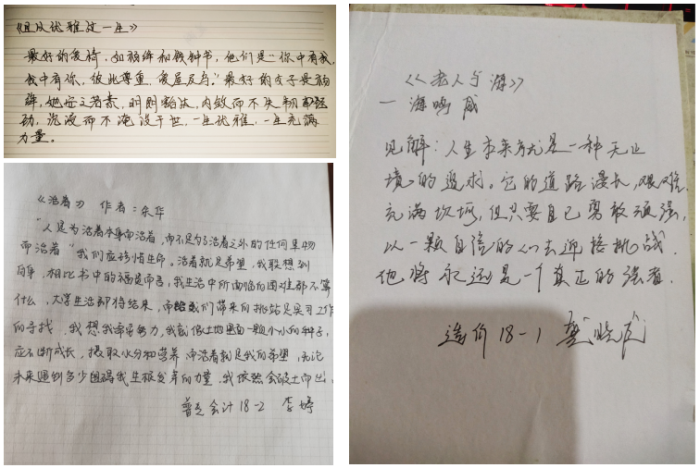 《且以优雅过一生》
最好的爱情，如杨绛和钱钟书，他们是“你中有我，
我中有你，彼此尊重，爱屋及乌”最好的女子是杨
绛，她安之若素，内敛而不失韧
劲，沉浸而不淹没于世，一生优雅，一生充满
力量。
《活着》 作者：余华
“人是为活着本身而活着，而不是为了活着之外的任何事物
而活着”我们应珍惜生命。活着就是希望，我联想到
自身，相比书中的福贵而言，我生活中所面临的困难都不算
什么，大学生活即将结束，而给我们带来的挑战是实习工作
的寻找，我想我需要努力，我就像土地里的一颗小小的种子，
应不断成长，摄取水分和营养，活着就是我的希望，无论
未来遇到多少阻碍我生根发芽的力量，我依然会破土而出。
普会计18-2 李婷
《老人与海》
— 海明威
见解：人生本来就是一种无止
境的追求。它的道路漫长、艰难，
充满坎坷，但只要自己勇敢顽强，
以一颗自信的心去迎接挑战，
他将永远是一个真正的强者。
造价18-1 龚晓